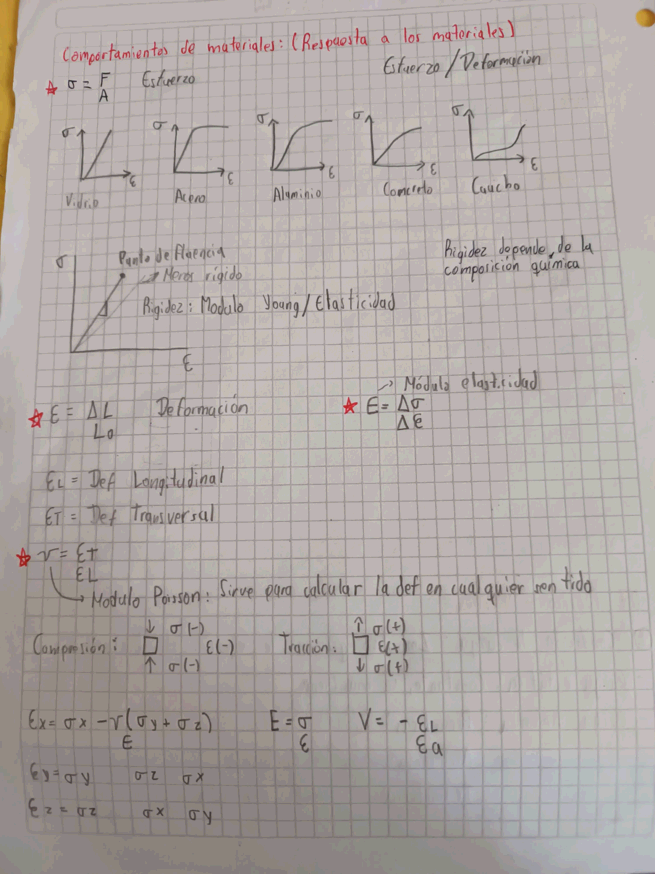 Comportamientos de materiales: (Respuesta a los materiales)
Esfuerzo / Deformación
σ = F/A Esfuerzo
σ ε Vidrio
σ ε Acero
σ ε Aluminio
σ ε Concreto
σ ε Caucho
σ
Punto de fluencia
Menos rígido
Rigidez: Modulo Young/Elasticidad
ε
Rigidez depende de la
composición química
ε = ΔL/Lo Deformación
Módulo elasticidad
E = Δσ/Δε
εL = Def Longitudinal
εT = Def Transversal
v = εt/εL
Modulo Poisson: Sirve para calcular la def en cualquier sentido
Compresión: σ(-) ε(-) σ(-)
Tracción: σ(+) ε(+) σ(+)
εx = σx - v(σy + σz)
E
E = σ/ε
V = - εL/εa
εy = σy σz σx
εz = σz σx σy